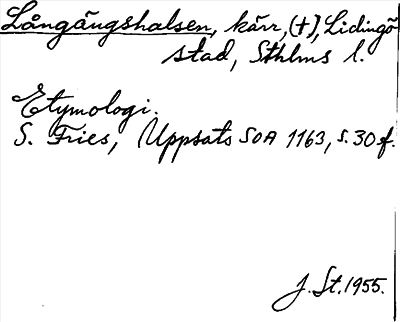 Långängshalsen, kärr, (†), Lidingö
stad, Sthlms l.
Etymologi.
S. Fries, Uppsats SOA 1163, s. 30 f.
J. St. 1955.